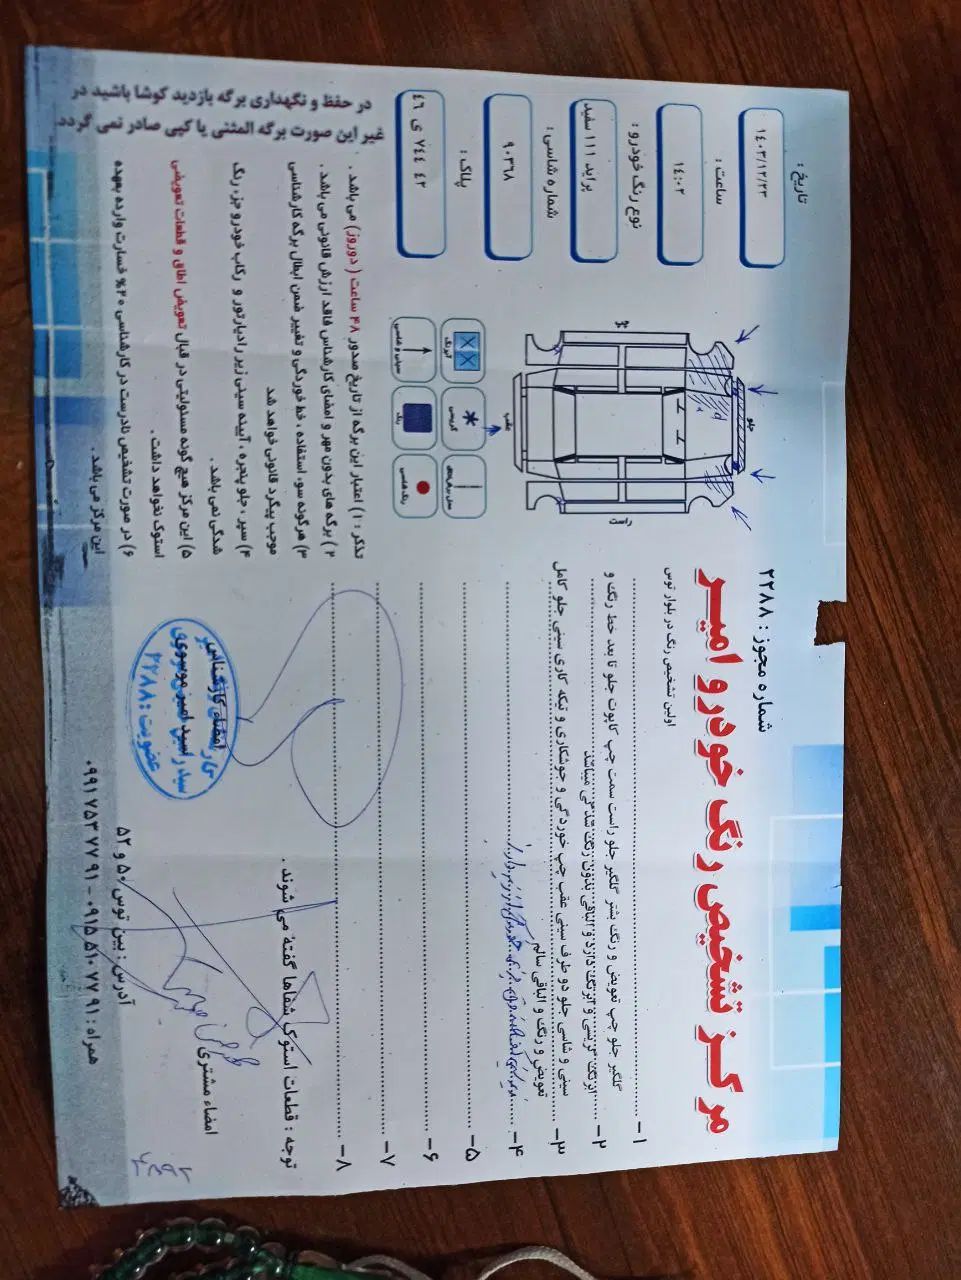 مرکز تشخیص رنگ خودرو امیر
شماره مجوز : ۲۲۸۸
اولین تشخیص رنگ در بلوار توس
تاریخ :
۱۴۰۳/۱۲/۲۳
ساعت :
۱۴:۰۲
نوع رنگ خودرو :
پراید ۱۱۱ سفید
شماره شاسی :
۹۰۳۶۸
پلاک :
۴۲ ۷۴۴ ی ۴۶
جلو
چپ
راست
عقب
۱-
گلگیر جلو چپ تعویض و رنگ بشتر گلگیر جلو راست سمت چپ کاپوت جلو تا بعد خط رنگ و
۲-
ابرنگ گریسی و ابرنگ دارد و الباقی بدون رنگ شدگی میباشد
۳-
سینی و شاسی جلو دو طرف سینی عقب چپ خوردگی و جوشکاری و تیکه کاری سینی جلو کامل
تعویض و رنگ و الباقی سالم
۴-
۵-
۶-
۷-
۸-
توجه : قطعات استوک شفاها گفته می شوند.
امضاء مشتری
امضاء کارشناس
سید امیر موسوی
عضویت : ۲۲۸۸
تذکر : ۱) اعتبار این برگه از تاریخ صدور ۴۸ ساعت ( دوروز) می باشد .
۲) برگه های بدون مهر و امضای کارشناس فاقد ارزش قانونی می باشد .
۳) هرگونه سوء استفاده ، خط خوردگی و تغییر ضمن ابطال برگه کارشناسی
موجب پیگرد قانونی خواهد شد
۴) سپر ، جلو پنجره ، آیینه سینی زیر رادیاتور و رکاب خودرو جزء رنگ
شدگی نمی باشد .
۵) این مرکز هیچ گونه مسئولیتی در قبال تعویض اطاق و قطعات تعویضی
استوک نخواهد داشت .
۶) در صورت تشخیص نادرست در کارشناسی ۲۰% خسارت وارده بعهده
این مرکز می باشد .
در حفظ و نگهداری برگه بازدید کوشا باشید در
غیر این صورت برگه المثنی یا کپی صادر نمی گردد.
آدرس : بین توس ۵۰ و ۵۲
همراه : ۰۹۱۵ ۵۱۰ ۷۷ ۹۱ - ۰۹۹۱ ۷۵۳ ۷۷ ۹۱